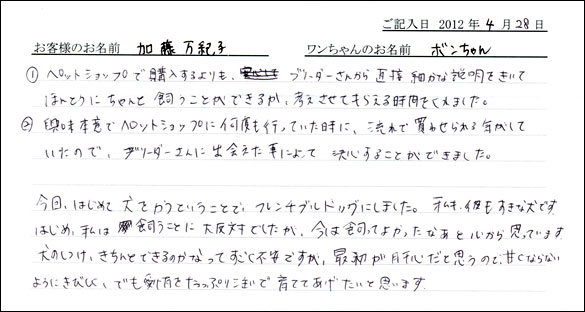 ご記入日 2012年4月28日
お客様のお名前 加藤万紀子 ワンちゃんのお名前 ボンちゃん
① ペットショップで購入するよりも、ブリーダーさんから直接細かな説明をきいて
ほんとうにちゃんと飼うことができるか、考えさせてもらえる時間をくれました。
② 興味本意でペットショップに何度も行っていた時に、流れで買わせられる気がして
いたので、ブリーダーさんに出会えた事によって決心することができました。
今回、はじめて犬をかうということで、フレンチブルドッグにしました。私も彼もすきな犬です
はじめ、私は飼うことに大反対でしたが、今は飼ってよかったなぁと心から思っています
犬のしつけ、きちんとできるのかなってすごく不安ですが、最初が肝心だと思うので、甘くならない
ようにきびしく、でも愛情をたっぷりそそいで育ててあげたいと思います